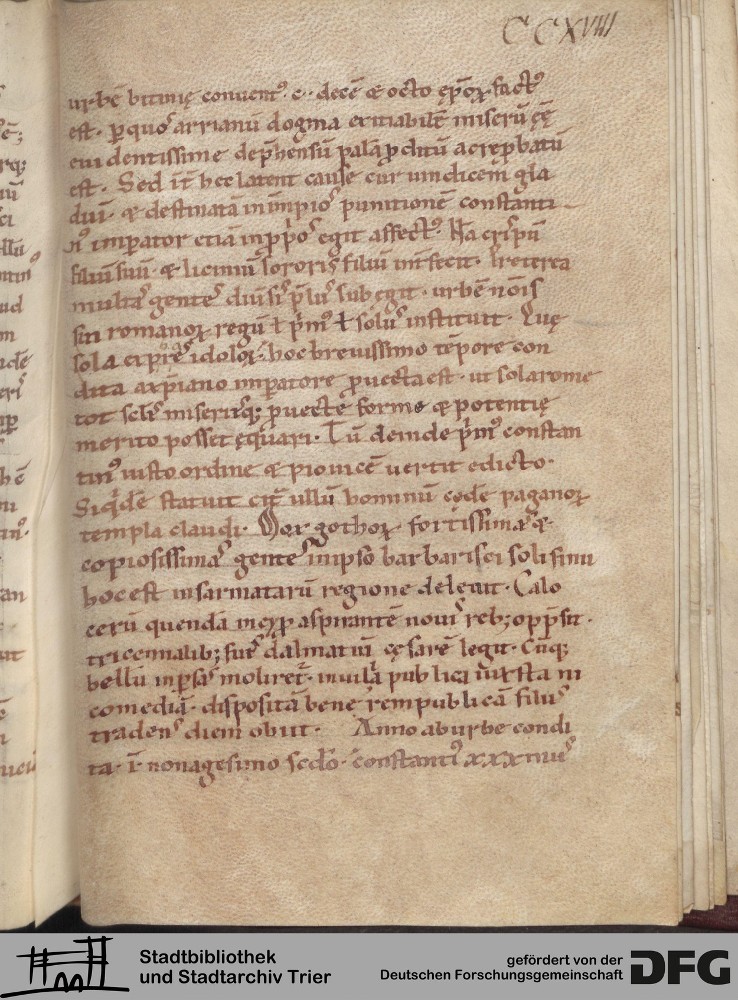 CCXVIII
urbē bitinię conuent᷒ .c. decē & octo ęp̄oꝝ fact᷒
est. p̱ quos arrianū dogma exitiabilē miserū ēē
euidentissime dep̄hensū palā p̱ditū ac rep̱batū
est. Sed it̄ hec latent cause cur uindicem gla
diū. & destinatā in impios punitionē constanti
n᷒ imperator etiā in pp̱os egit affect᷒. Nā crispū
filiū suū & liciniū sororis filiū int̄fecit. Preterea
multas gentes diuersis p̄liis subegit. urbē nōis
sui romanoꝝ regū ł p̄m᷒ ł solus instituit. Quę
sola expers idoloꝝ. hoc breuissimo tēpore con
dita a xp̄iano imperatore p̱uecta est. ut sola rome
tot sclis miseriisq; p̱uectę forme & potentię
merito posset ęquari. Tū deinde p̄m᷒ constan
tin᷒ iusto ordine & pio uicē uertit edicto.
Siq̇dē statuit cit̄ ullū hominū cędē paganoꝝ
templa claudi. Mox gothoꝝ fortissimas &
copiosissimas gentes in ipso barbarici soli sinu
hoc est in sarmatarū regione deleuit. Calo
cerū quendā in cyp̱ aspirantē nouis reb; opp̄sit.
tricennalib; suis dalmatiū cęsarē legit. Cūq;
bellū in p̱sas moliret̄. in uilla publica iuxta ni
comediā. dispositā bene rempublicā filiis
tradens diem obiit. Anno ab urbe condi
ta. ī. nonagesimo scdo. constanti᷒ xxxiiii᷒
Stadtbibliothek
und Stadtarchiv Trier
gefördert von der
Deutschen Forschungsgemeinschaft
DFG